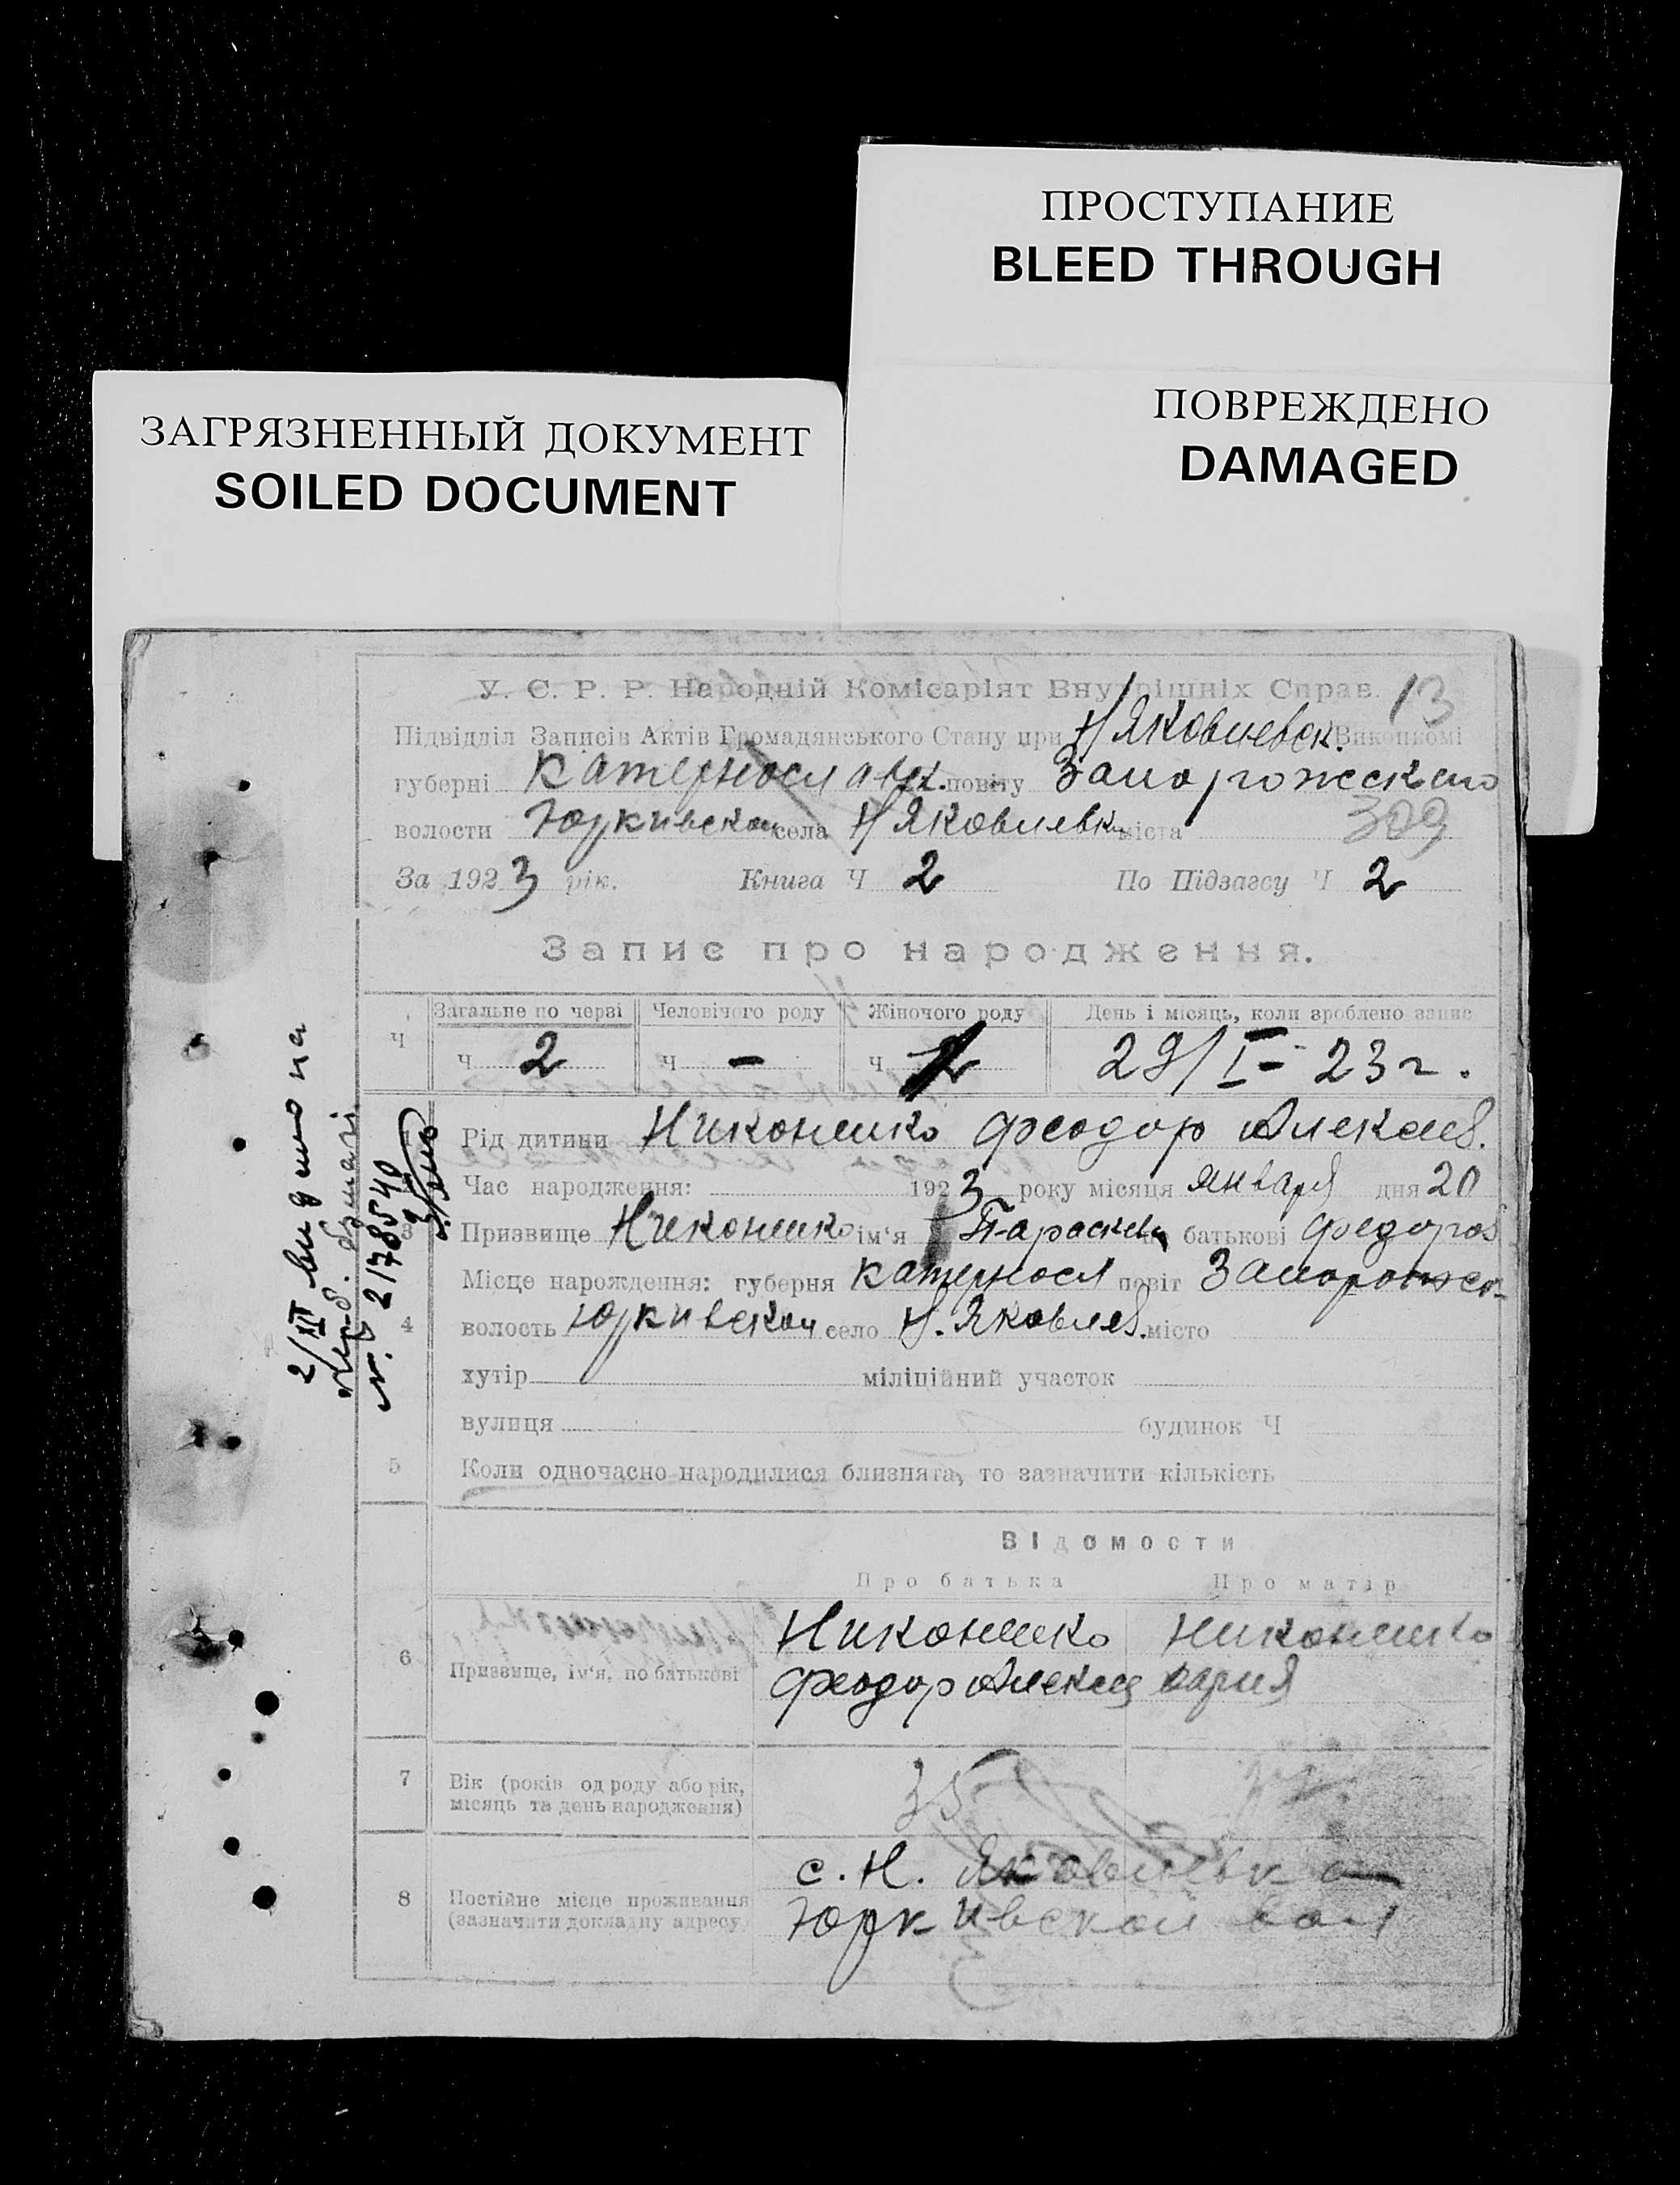 ПРОСТУПАНИЕ
BLEED THROUGH
ПОВРЕЖДЕНО
DAMAGED
ЗАГРЯЗНЕННЫЙ ДОКУМЕНТ
SOILED DOCUMENT
У. С. Р. Р. Народній Комісаріят Внутрішніх Справ. 13
Підвідділ Записів Актів Громадянського Стану при Н Яковлевск. Виконкомі
губерні Катериносл авск. повіту Запорожского
волости Юрківской села Н Яковлевки міста 309
За 1923 рік. Книга Ч 2 По Підзагсу Ч 2
Запис про народження.
Ч Загальне по черзі Человічого роду Жіночого роду День і місяць, коли зроблено запис
ч 2 ч - ч 2 29/I- 23 г.
Рід дитини Никоненко Феодор Алексеев.
Час народження: 1923 року місяця января дня 20
3 Призвище Никоненко ім'я Параскева батькові Федоров
Місце народження: губерня Катериносл повіт Запорожск-
4 волость Юркивской село Н. Яковлев. місто
хутір міліційний участок
вулиця будинок Ч
5 Коли одночасно народилися близнята, то зазначити кількість
Відомости
Про батька Про матір
Никоненко Никоненко
6 Призвище, ім'я, по батькові Феодор Алексеев Дария
7 Вік (років од роду або рік, місяць та день народження) 35
8 Постійне місце проживання (зазначити докладну адресу)
с. Н. Яковлевка
Юркивской вол
2/III видано на
№ 2178540